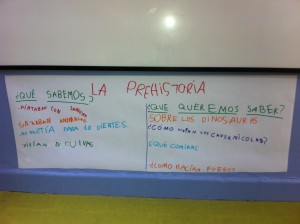 LA PREHISTORIA
¿QUÉ SABEMOS?
PINTABAN CON SANGRE
CAZABAN ANIMALES
NO HABÍA PASTA DE DIENTES
VIVÍAN EN CUEVAS
¿QUE QUEREMOS SABER?
SOBRE LOS DINOSAURIOS
¿CÓMO VIVÍAN LOS CAVERNICOLAS?
¿QUÉ COMÍAN?
¿COMO HACÍAN FUEGO?